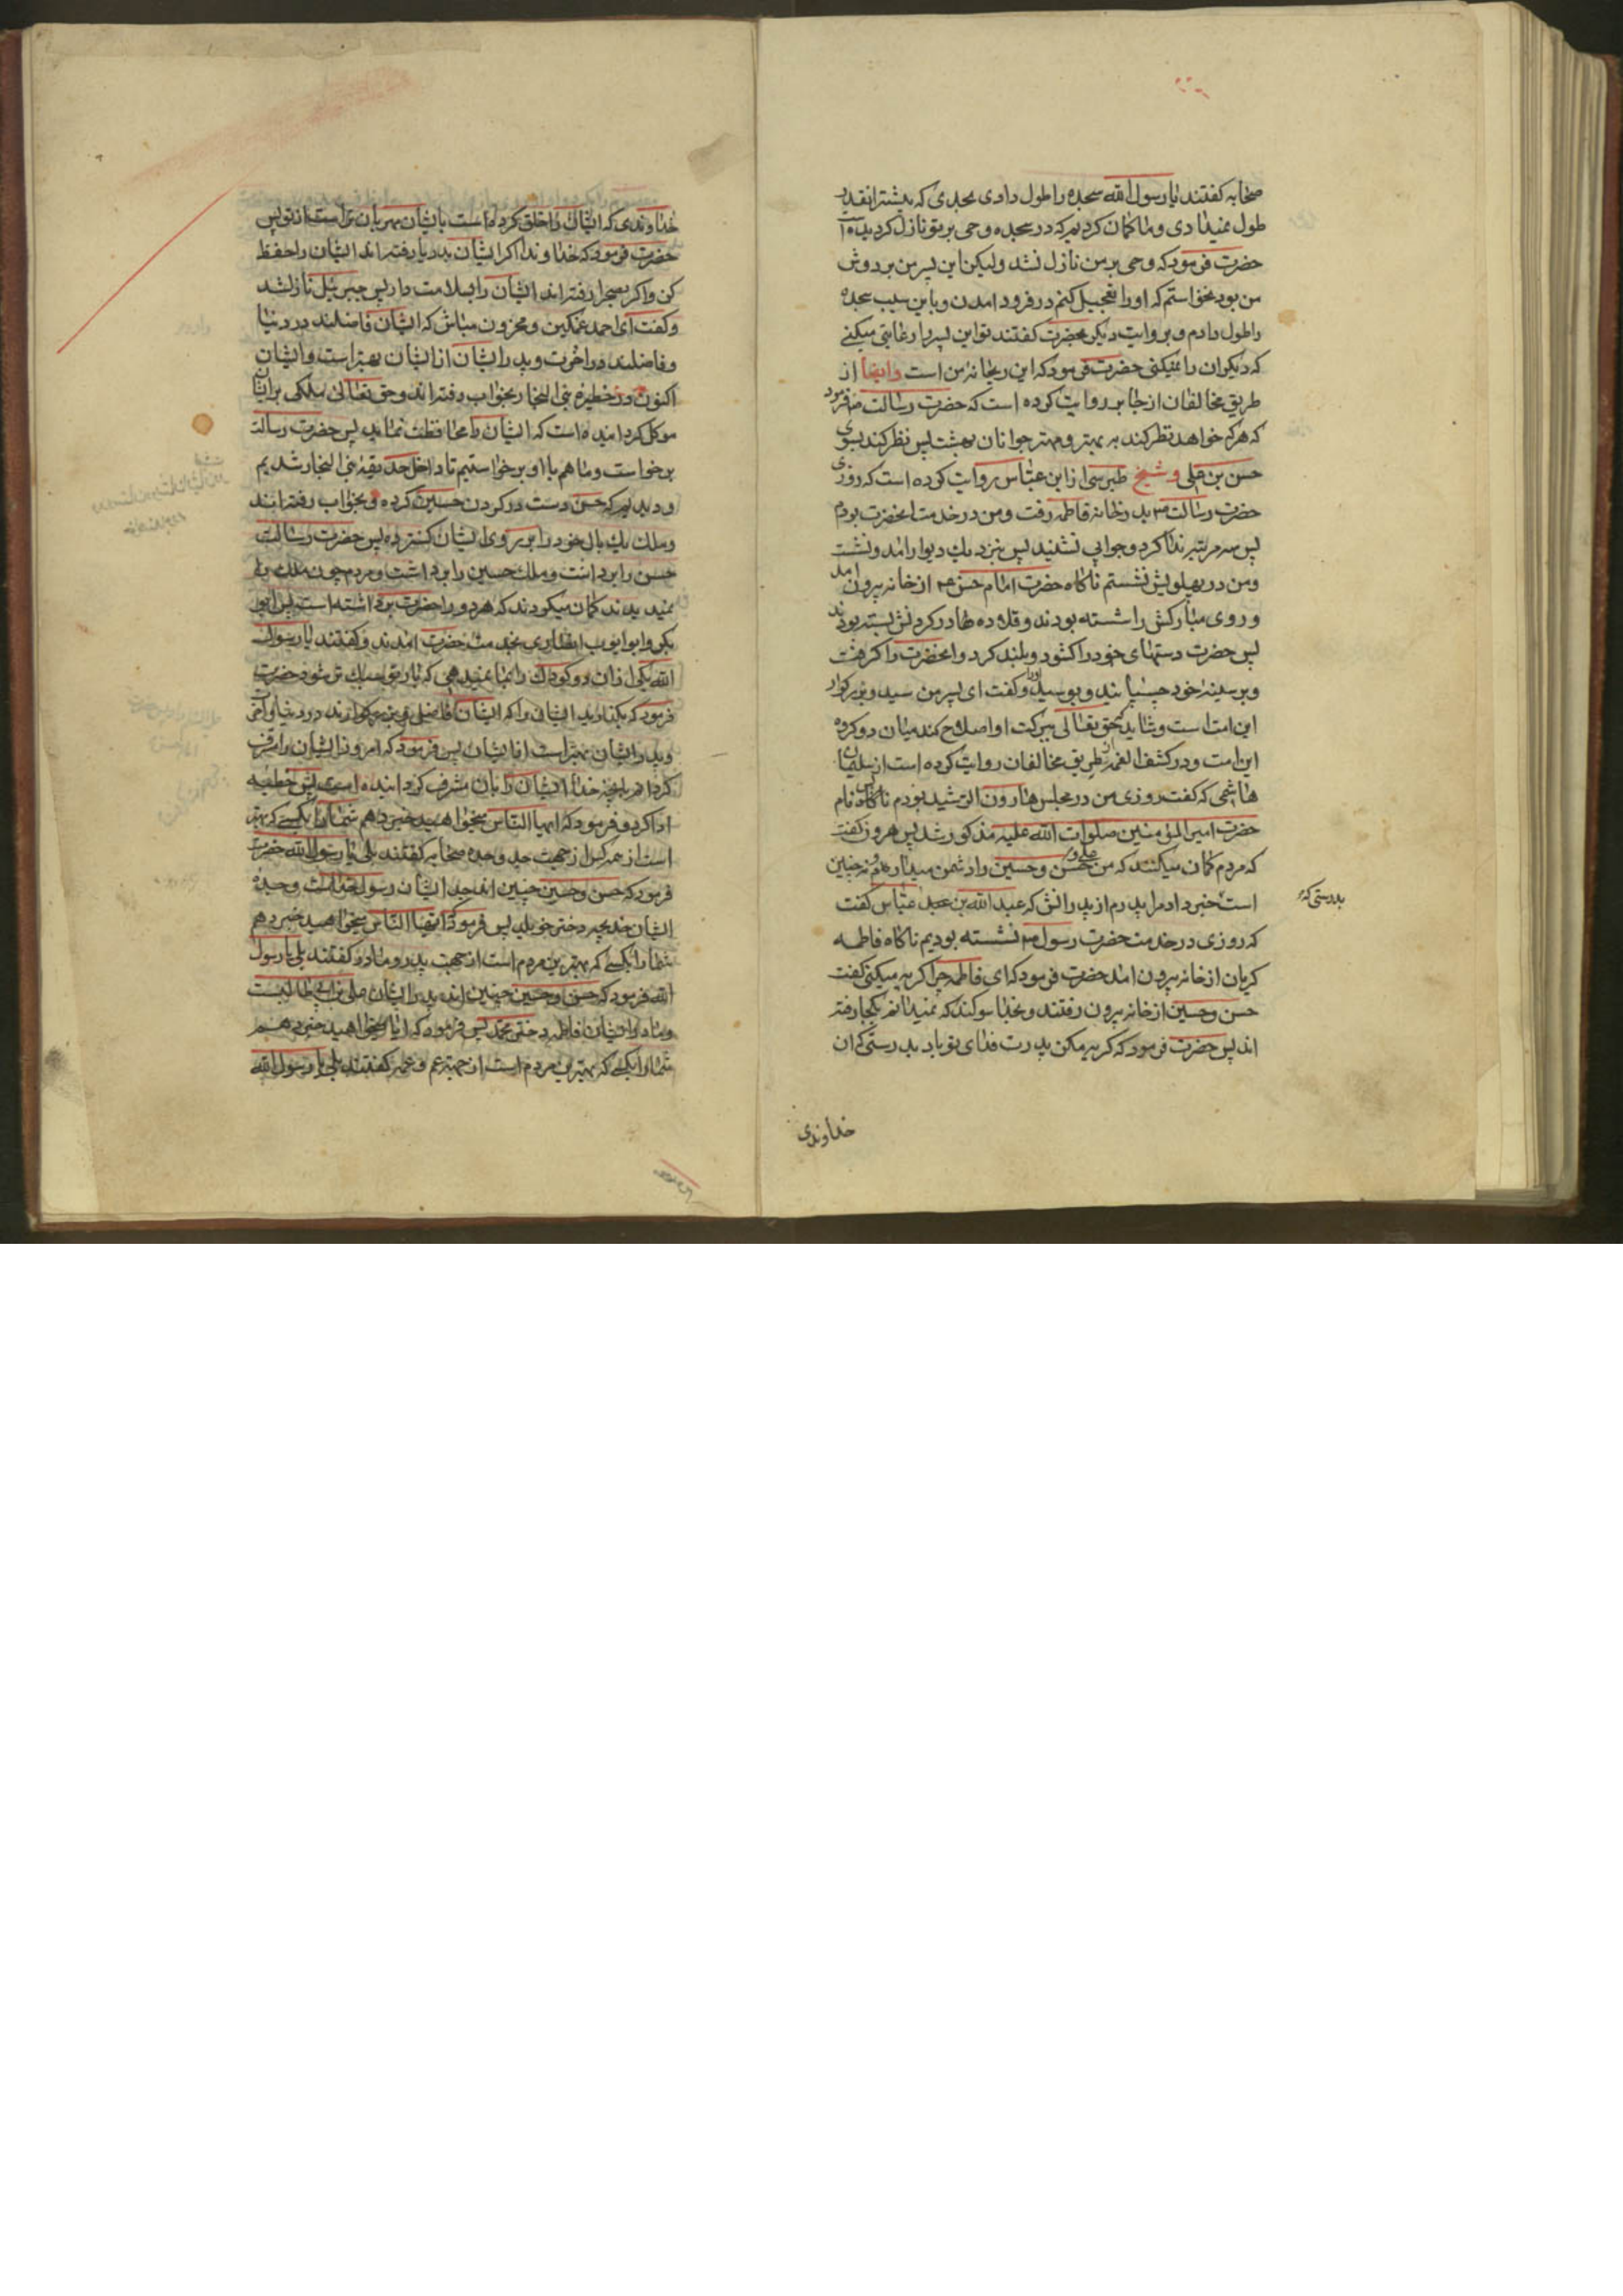 صحابه کفتند یا رسول الله سجده را طول دادی بحدی که پیشتر انقدر
طول نمیدادی و ما کمان کردیم که در سجده وحی بر تو نازل کردیده است
حضرت فرمود که وحی بر من نازل نشد ولیکن این پسر من بر دوش
من بود نخواستم که او را تعجیل کنم در فرود امدن و باین سبب سجده
را طول دادم و بروایت دیکر بحضرت کفتند تو این پسر را رعایتی میکنی
که دیکران را نمیکنی حضرت فرمود که این ریحانه من است وایضا از
طریق مخالفان از جابر روایت کرده است که حضرت رسالت ص فرمود
که هر که خواهد نظر کند به بهتر و مهتر جوانان بهشت پس نظر کند بسوی
حسن بن علی و شیخ طبرسی از ابن عباس روایت کرده است که روزی
حضرت رسالت ص بدر خانه فاطمه رفت و من در خدمت انحضرت بودم
پس سه مرتبه ندا کرد و جوابی نشنید پس بنزدیك دیوار امد و نشست
و من در پهلویش نشستم ناکاه حضرت امام حسن ع از خانه بیرون امد
و روی مبارکش را شسته بودند و قلاده ها در کردنش بسته بودند
پس حضرت دستهای خود را کشود و بلند کرد و انحضرت را کرفت
و بر سینه خود چسپانید و بوسید او را و کفت ای پسر من سید و بزرکوار
این امت است و شاید که حق تعالی ببرکت او اصلاح کند میان دو کروه
این امت و در کشف الغمه از طریق مخالفان روایت کرده است از سلیمان
هاشمی که کفت روزی من در مجلس هارون الرشید بودم ناکاه نام
حضرت امیر المؤمنین صلوات الله علیه مذکور شد پس هرون کفت
که مردم کمان میکنند که من علی و حسن و حسین را دشمن میدارم و نه چنین
است خبر داد مرا پدرم از پدرانش که عبد الله بن عباس کفت
که روزی در خدمت حضرت رسول ص نشسته بودیم ناکاه فاطمه
کریان از خانه بیرون امد حضرت فرمود که ای فاطمه چرا کریه میکنی کفت
حسن و حسین از خانه بیرون رفتند و بخدا سوکند که نمیدانم بکجا رفته
اند پس حضرت فرمود که کریه مکن پدرت فدای تو باد بدرستی که ان
بدرستی که
خداوندی
خداوندی که ایشان را خلق کرده است بایشان مهربان تر است از تو پس
حضرت فرمود که خداوندا اکر ایشان بدریا رفته اند ایشان را حفظ
کن و اکر بصحرا رفته اند ایشان را بسلامت دار پس جبرئیل نازل شد
و کفت ای احمد غمکین و محزون مباش که ایشان فاضلند در دنیا
و فاضلند در اخرت و پدر ایشان از ایشان بهتر است و ایشان
اکنون در حظیره بنی النجار بخواب رفته اند و حق تعالی ملکی بر ایشان
موکل کردانیده است که ایشان را محافظت نماید پس حضرت رسالت
برخواست و ما هم با او برخواستیم تا داخل حدیقه بنی النجار شدیم
و دیدیم که حسن دست در کردن حسین کرده و بخواب رفته اند
و ملك یك بال خود را بر روی ایشان کسترده پس حضرت رسالت
حسن را برداشت و ملك حسین را برداشت و مردم چون ملك را
نمیدیدند کمان میکردند که هر دو را حضرت برداشته است پس ابو
بکر و ابو ایوب انصاری بخدمت حضرت امدند و کفتند یا رسول
الله یکی از ان دو کودك را بما نمیدهی که بار تو سبك تر شود حضرت
فرمود که بکذارید ایشان را که ایشان فاضل و بزرکوارند در دنیا و آخرت
و پدر ایشان بهتر است از ایشان پس فرمود که امروز ایشان را مشرف
کردانم بانچه خدا ایشان را بان مشرف کردانیده است پس خطبه
ادا کرد و فرمود که ایها الناس میخواهید خبر دهم شما را بکسی که بهتر
است از همه کس از جهت جد و جده صحابه کفتند بلی یا رسول الله حضرت
فرمود که حسن و حسین چنین اند جد ایشان رسول خداست و جده
ایشان خدیجه دختر خویلد پس فرمود ایها الناس میخواهید خبر دهم
شما را بکسی که بهترین مردم است از جهت پدر و مادر کفتند بلی یا رسول
الله فرمود که حسن و حسین چنین اند پدر ایشان علی بن ابی طالبست
و مادر ایشان فاطمه دختر محمد پس فرمود که ایا میخواهید خبر دهم
شما را بکسی که بهترین مردم است از جهة عم و عمه کفتند بلی یا رسول الله